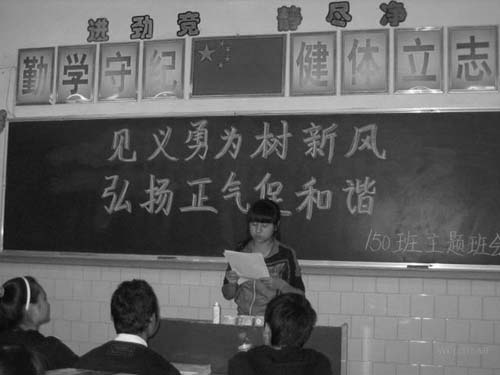 进劲竞 静尽净
勤学守纪 健体立志
见义勇为树新风
弘扬正气促和谐
150班主题班会